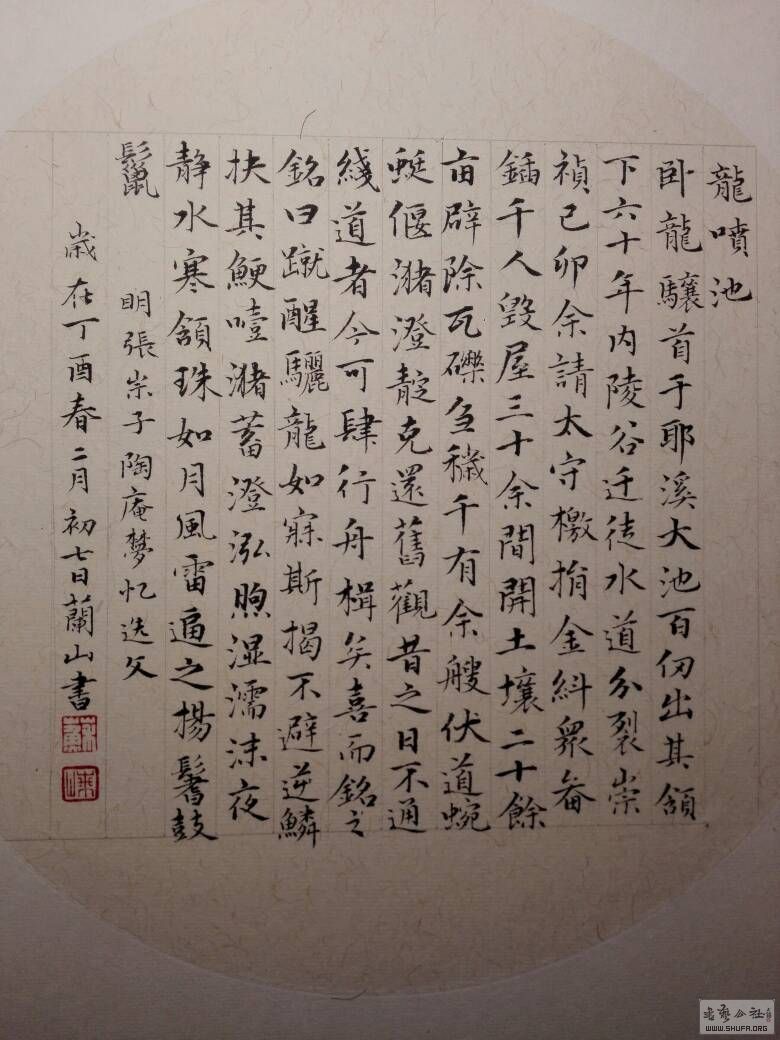 龍噴池
卧龍驤首于耶溪大池百仞出其頷
下六十年内陵谷迁徒水道分裂崇
禎己卯余請太守檄捐金糾衆畚
鍤千人毁屋三十余間開土壤二十餘
亩辟除瓦礫刍穢千有余艘伏道蜿
蜓偃潴澄靛克還舊觀昔之日不通
綫道者今可肆行舟楫矣喜而銘之
銘曰蹴醒驪龍如寐斯揭不避逆鱗
抉其鯁噎潴蓄澄泓煦湿濡沫夜
静水寒頷珠如月風雷逼之揚鬐鼓
鬣
明張宗子陶庵夢忆迭父
歲在丁酉春二月初七日蘭山書
WWW.SHUFA.ORG